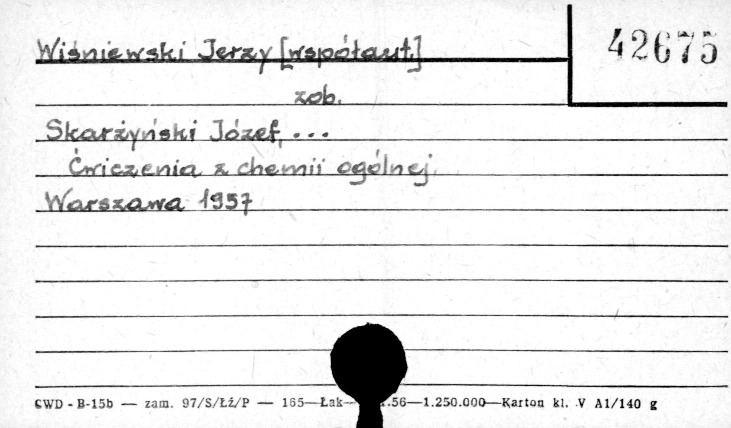 Wiśniewski Jerzy [współaut.]
42675
zob.
Skarżyński Józef, ...
Ćwiczenia z chemii ogólnej.
Warszawa 1957
CWD - B-15b — zam. 97/S/Łź/P — 165—Łak— .56—1.250.000—Karton kl. V A1/140 g